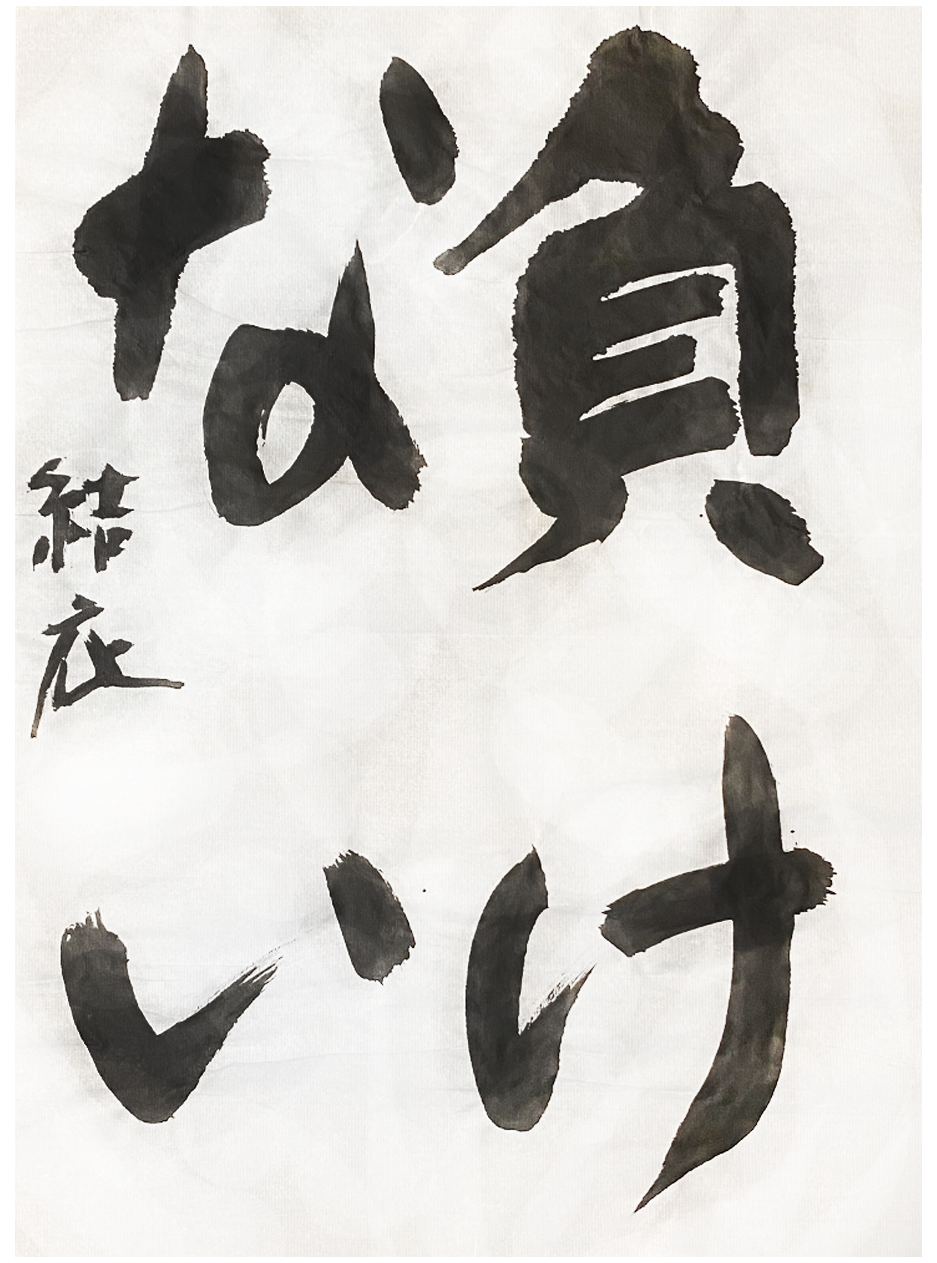 負け
ない
結衣